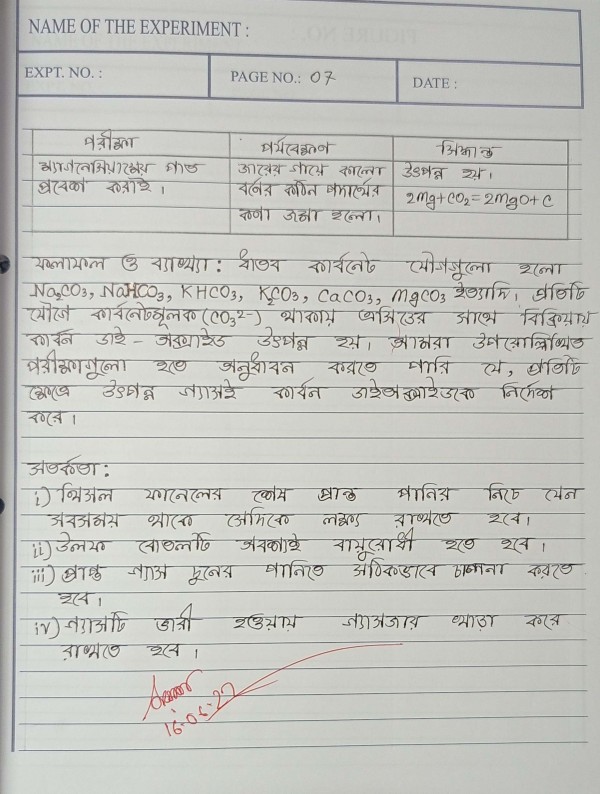 NAME OF THE EXPERIMENT :
EXPT. NO. :
PAGE NO.: 07
DATE :
পরীক্ষা
পর্যবেক্ষণ
সিদ্ধান্ত
ম্যাগনেসিয়ামের পাত
প্রবেশ করাই।
জারের গায়ে কালো
বর্ণের কঠিন পদার্থের
কণা জমা হলো।
উৎপন্ন হয়।
2Mg+CO2=2MgO+C
ফলাফল ও ব্যাখ্যা : ধাতব কার্বনেট যৌগগুলো হলো
Na2CO3, NaHCO3, KHCO3, K2CO3, CaCO3, MgCO3 ইত্যাদি। প্রতিটি
যৌগে কার্বনেটমূলক (CO3^2-) থাকায় এসিডের সাথে বিক্রিয়ায়
কার্বন ডাই-অক্সাইড উৎপন্ন হয়। আমরা উপরোল্লিখিত
পরীক্ষাগুলো হতে অনুধাবন করতে পারি যে, প্রতিটি
ক্ষেত্রে উৎপন্ন গ্যাসই কার্বন ডাইঅক্সাইডকে নির্দেশ
করে।
সতর্কতা :
i) থিসল ফানেলের শেষ প্রান্ত পানির নিচে যেন
সবসময় থাকে সেদিকে লক্ষ্য রাখতে হবে।
ii) উলফ বোতলটি অবশ্যই বায়ুরোধী হতে হবে।
iii) প্রাপ্ত গ্যাস চুনের পানিতে সঠিকভাবে চালনা করতে
হবে।
iv) গ্যাসটি ভারী হওয়ায় গ্যাসজার খাড়া করে
রাখতে হবে।